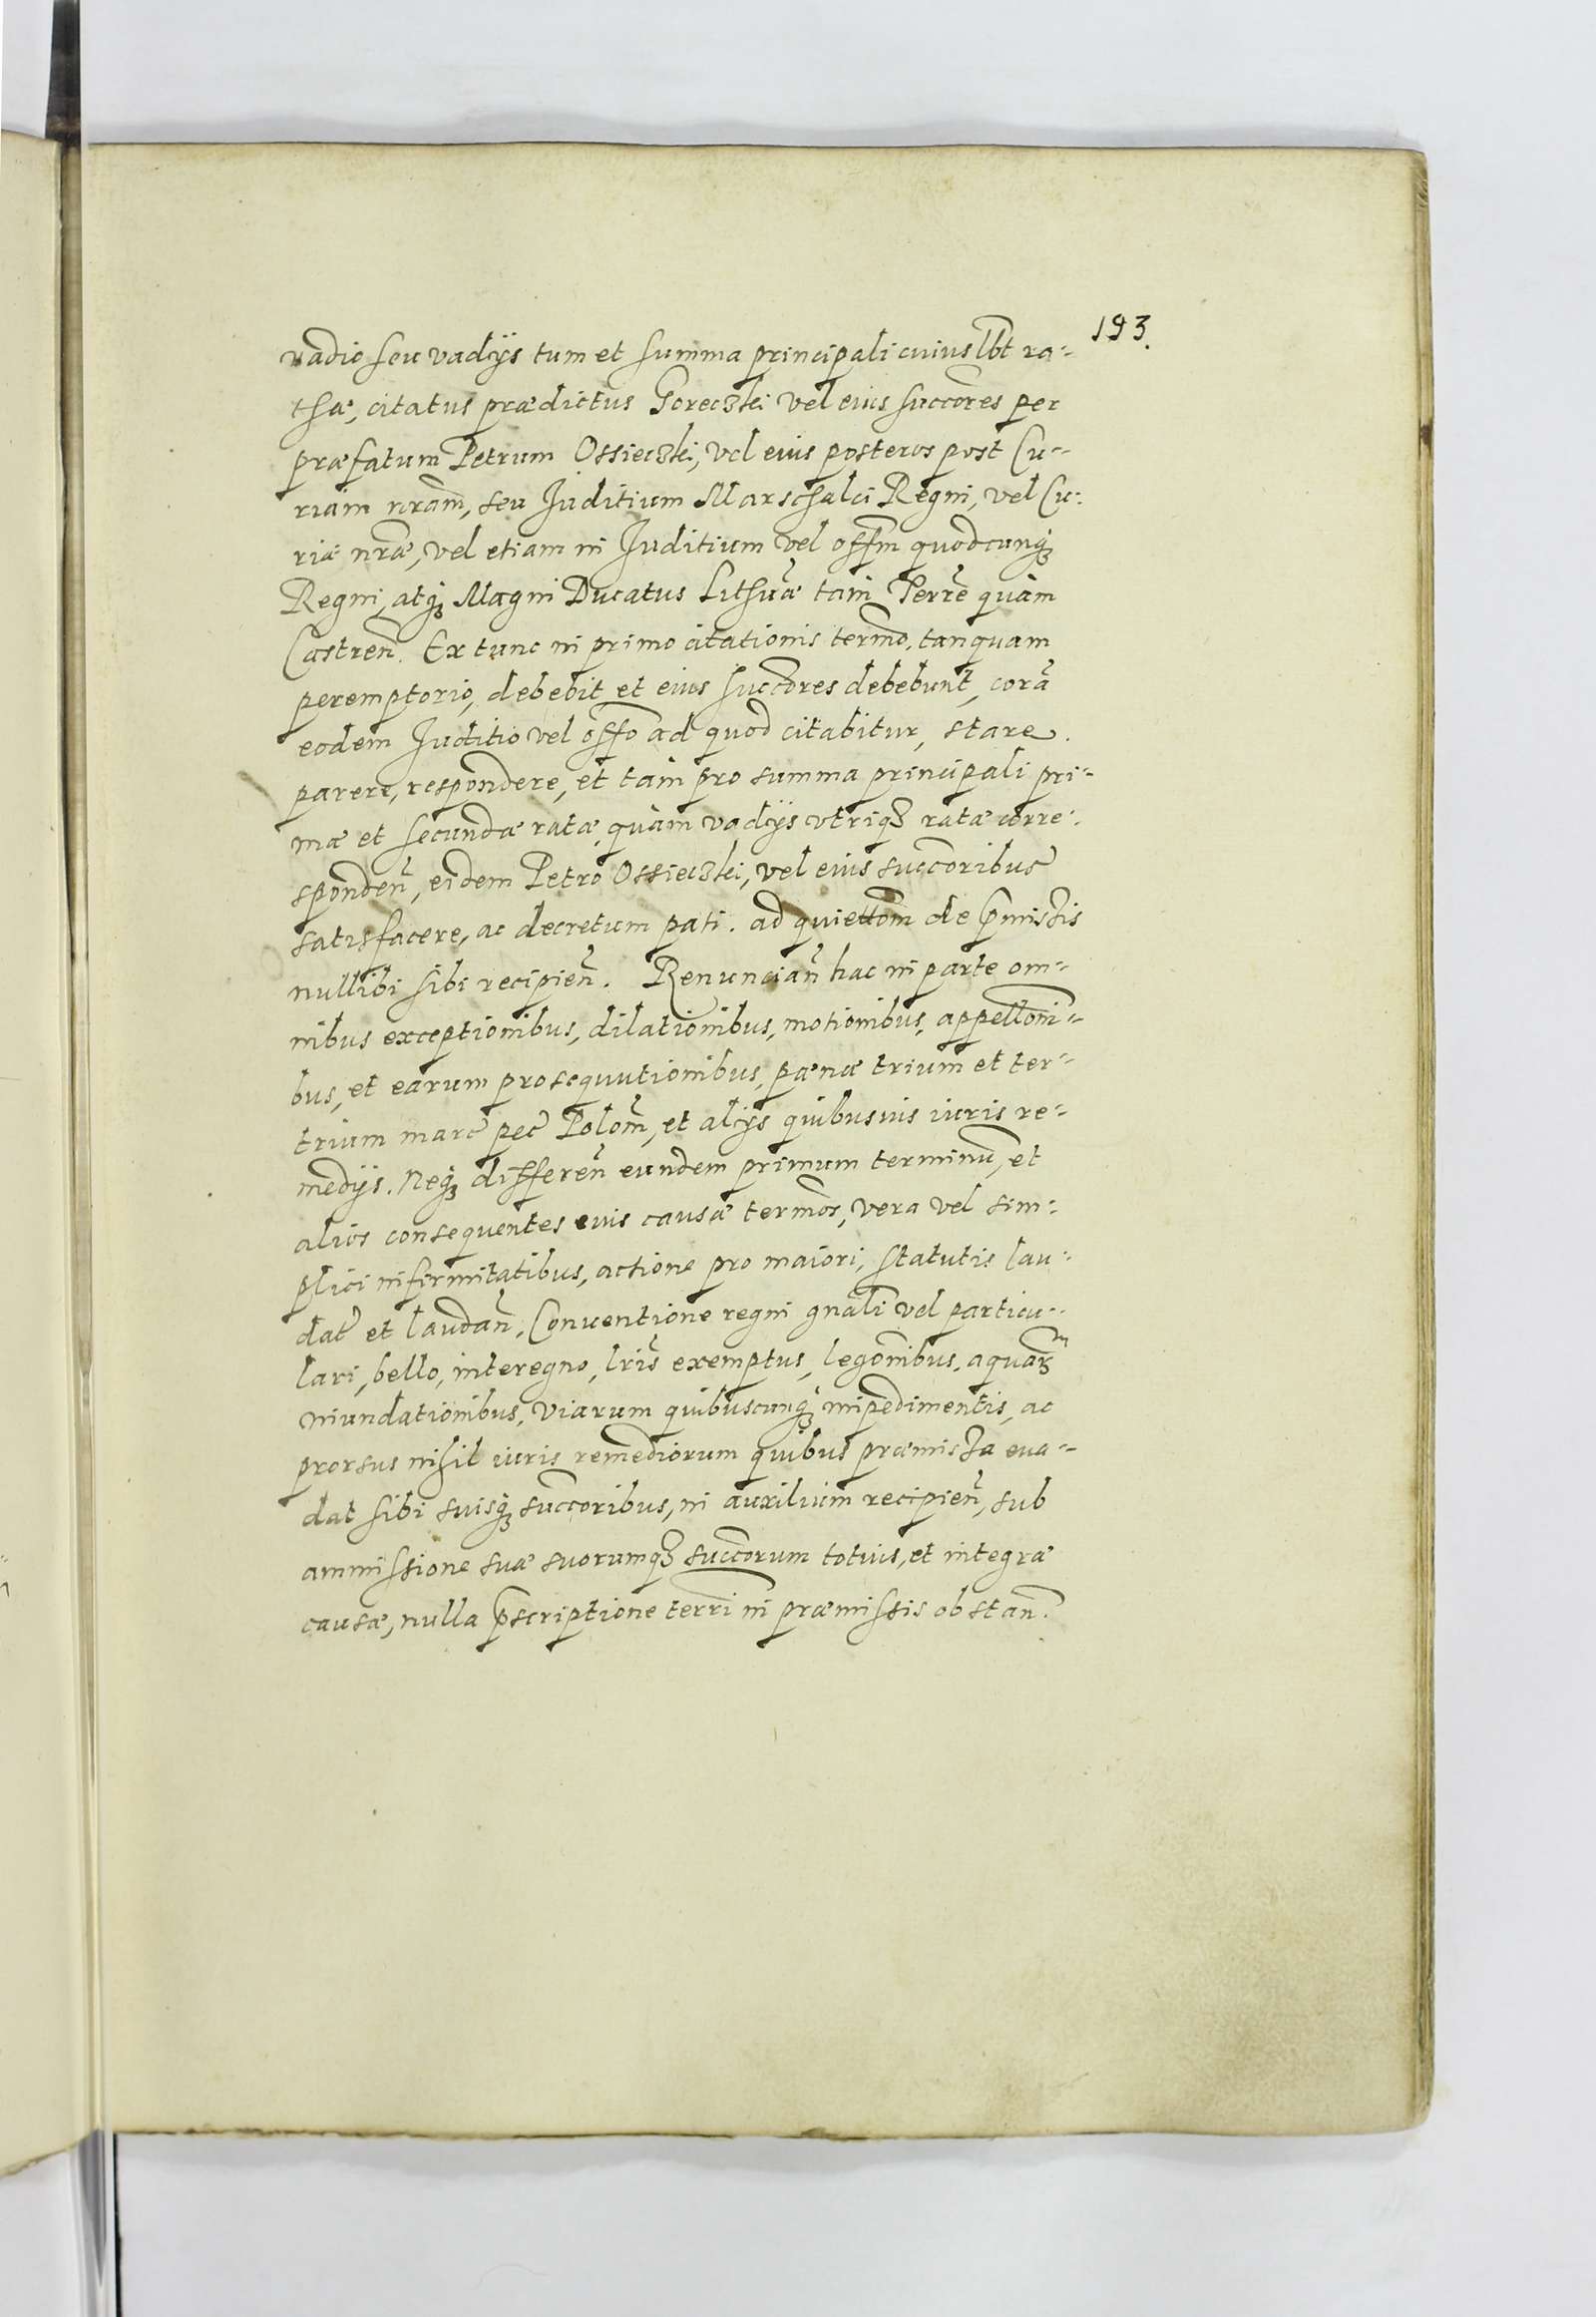 193.
vadio seu vadijs tum et summa principali cuiuslbt ra-
thæ, citatus prædictus Goreczki vel eius succōres per
præfatum Petrum Ossieczki, vel eius posteros post Cu-
riam nram̄, seu Juditium Marschalci Regni, vel Cu-
riæ nrǣ, vel etiam in Juditium vel offm̄ quodcunq3
Regni, atq3 Magni Ducatus Lithuǣ tam Terrē quàm
Castren̄. Ex tunc in primo citationis termō, tanquam
peremptorio, debebit et eius succōres debebunt, corā
eodem Juditio vel offō ad quod citabitur, stare.
parere, respondere, et tam pro summa principali pri-
mæ et secundæ ratæ, quàm vadijs vtriq3 ratæ corre-
sponden̄, eidem Petro Ossieczki, vel eius succōribus
satisfacere, ac decretum pati. ad quiettōm de p̄missis
nullibi sibi recipien̄. Renuncian̄ hac in parte om-
nibus exceptionibus, dilationibus, motionibus, appellōni-
bus, et earum prosequutionibus, pænæ trium et ter-
trium marc̄ pec̄ Polōm, et alijs quibusuis iuris re-
medijs. Neq3 differen̄ eundem primum terminū, et
alios consequentes euis causæ termōs, vera vel sim-
plici infirmitatibus, actione pro maiori, statutis lau-
dat̄ et laudan̄, Conuentione regni gnāli vel particu-
lari, bello, interegno, lrīs exemptus, legōnibus, aquar3
inundationibus, viarum quibuscunq3 impedimentis, ac
prorsus nihil iuris remediorum quibus præmissa eua-
dat sibi suisq3 succōribus, in auxilium recipien̄, sub
ammissione suæ suorumq3 succōrum totius, et integræ
causæ, nulla p̄scriptione terrī in præmissis obstan̄.